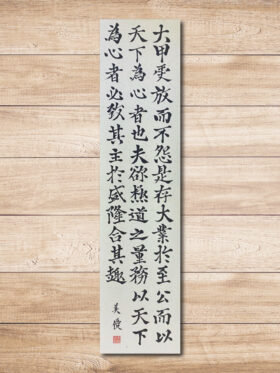 大甲受放而不怨是存大業於至公而以
天下為心者也夫欲極道之量務以天下
為心者必致其主於盛隆合其趣
美